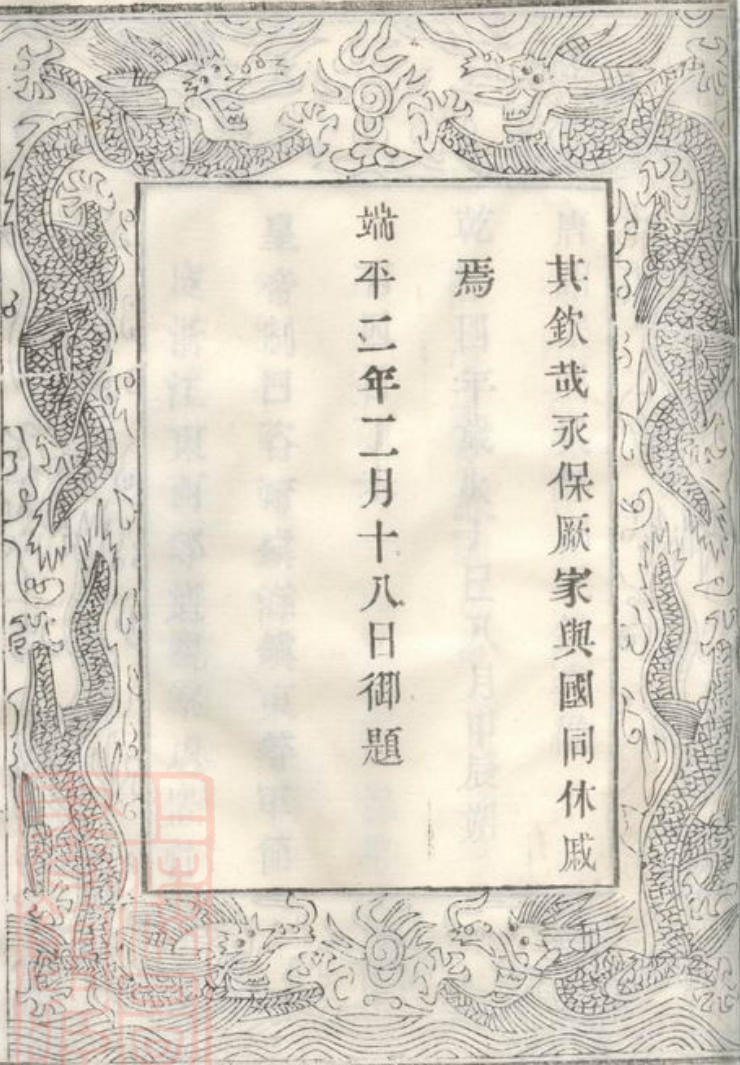 其欽哉永保厥家與國同休戚
焉
端平三年二月十八日御題